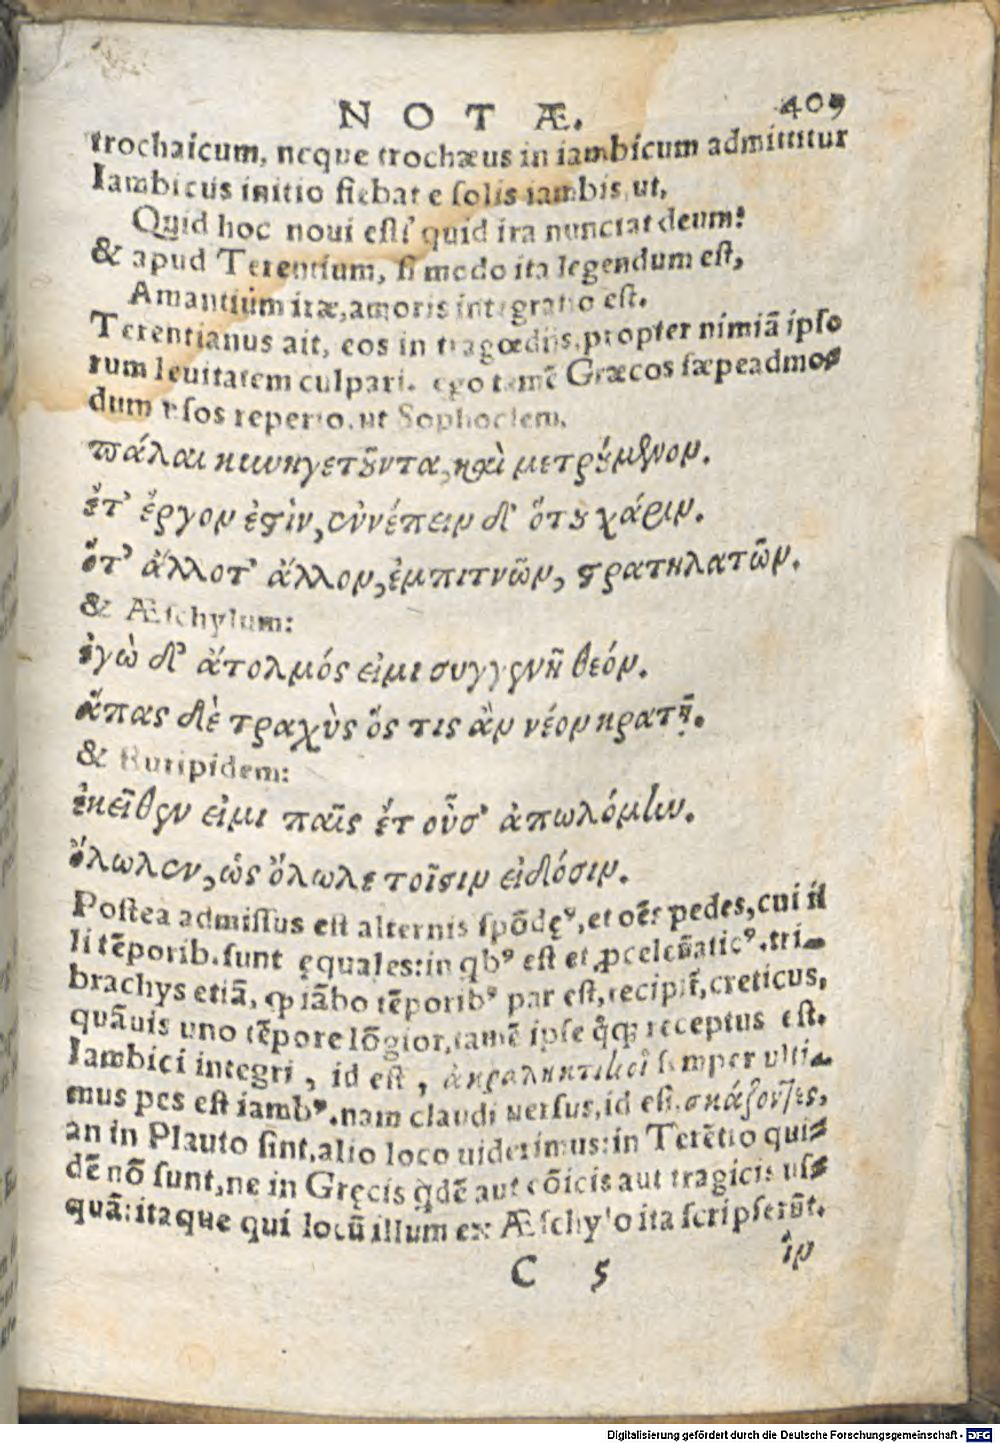 NOTÆ. 409
trochaicum, neque trochæus in iambicum admittitur
Iambicus initio fiebat e ſolis iambis, ut,
Quid hoc noui eſt? quid ira nunciat deum?
& apud Terentium, ſi modo ita legendum eſt,
Amantium iræ, amoris integratio eſt.
Terentianus ait, eos in tragœdijs, propter nimiā ipſo
rum leuitatem culpari. ego tamē Græcos ſæpeadmo-
dum uſos reperio, ut Sophoclem,
πάλαι κυνηγετοῦντα, καὶ μετρούμενον.
ἔτ' ἔργον ἐστὶν, ἐννέπειν δ' ὅτου χάριν.
ὅτ' ἄλλοτ' ἄλλον, ἐμπιτνῶν, στρατηλατῶν.
& Æſchylum:
ἐγὼ δ' ἄτολμός εἰμι συγγενῆ θεόν.
ἅπας δὲ τραχὺς ὅς τις ἂν νέον κρατῇ.
& Euripidem:
ἐκεῖθεν εἰμι παῖς ἔτ οὖσ' ἀπωλόμην.
ὄλωλεν, ὡς ὄλωλε τοῖσιν εἰδόσιν.
Poſtea admiſſus eſt alternis ſpōdęꝰ, et oēs pedes, cui il
li tēporib. ſunt ęquales: in qbꝰ eſt et ꝓceleūaticꝰ. tri-
brachys etiā, ꝙ iābo tēporibꝰ par eſt, recipit̃, creticus,
quāuis uno tēpore lōgior, tamē ipſe q̊q; receptus eſt.
Iambici integri, id eſt, ἀκαταληκτικοὶ ſemper ulti-
mus pes eſt iambꝰ. nam claudi uerſus, id eſt, σκάζοντες,
an in Plauto ſint, alio loco uiderimus: in Terētio qui-
dē nō ſunt, ne in Gręcis qdē aut cōicis aut tragicis uſ-
quā: itaque qui locū illum ex Æſchylo ita ſcripſerūt.
C 5 ἰν